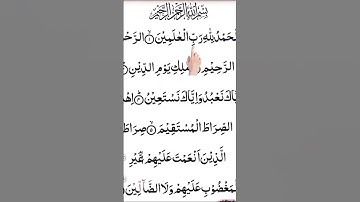 بِسْمِ اللهِ الرَّحْمٰنِ الرَّحِيْمِ
لْحَمْدُ لِلّٰهِ رَبِّ الْعٰلَمِيْنَ ۝١ الرَّحْ
الرَّحِيْمِ مٰلِكِ يَوْمِ الدِّيْنِ
يَّاكَ نَعْبُدُ وَاِيَّاكَ نَسْتَعِيْنُ ۝ اهْدِ
الصِّرَاطَ الْمُسْتَقِيْمَ ۝ صِرَاطَ
الَّذِيْنَ اَنْعَمْتَ عَلَيْهِمْ غَيْرِ
لْمَغْضُوْبِ عَلَيْهِمْ وَلَا الضَّآلِّيْنَ